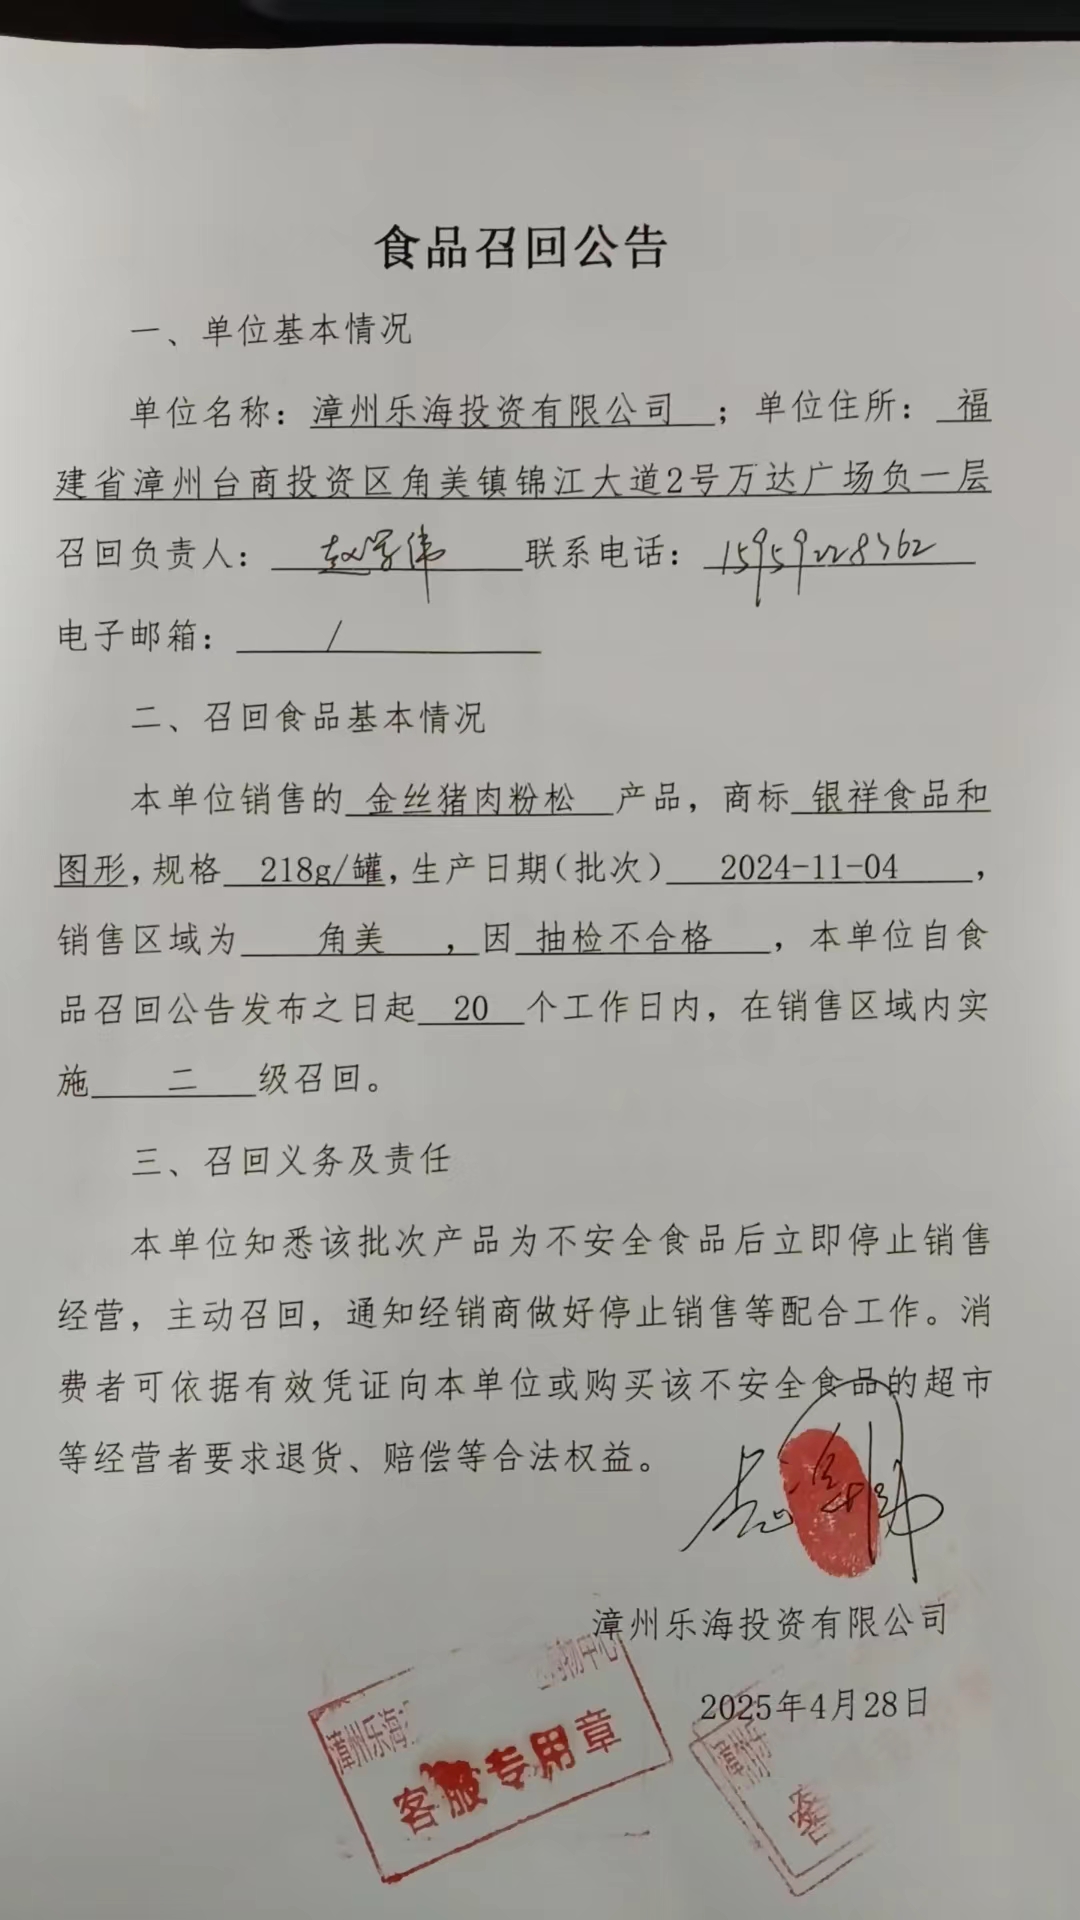 食品召回公告
一、单位基本情况
单位名称：漳州乐海投资有限公司；单位住所：福
建省漳州台商投资区角美镇锦江大道2号万达广场负一层
召回负责人：赵学伟 联系电话：15959228362
电子邮箱：/
二、召回食品基本情况
本单位销售的 金丝猪肉粉松 产品，商标 银祥食品和
图形，规格 218g/罐，生产日期（批次） 2024-11-04，
销售区域为 角美，因 抽检不合格，本单位自食
品召回公告发布之日起 20 个工作日内，在销售区域内实
施 二 级召回。
三、召回义务及责任
本单位知悉该批次产品为不安全食品后立即停止销售
经营，主动召回，通知经销商做好停止销售等配合工作。消
费者可依据有效凭证向本单位或购买该不安全食品的超市
等经营者要求退货、赔偿等合法权益。
漳州乐海投资有限公司
2025年4月28日
漳州乐海 购物中心
客服专用章
漳州乐
客